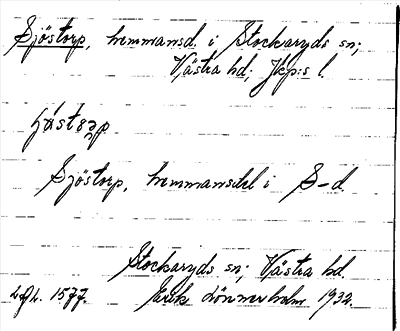 Sjöstorp, hemmansd. i Stockaryds sn;
Västra hd; Jkp:s l.
Sjöstorp, hemmansdel i S–d.
Stockaryds sn; Västra hd.
1577. Erik Lönnerholm 1932.